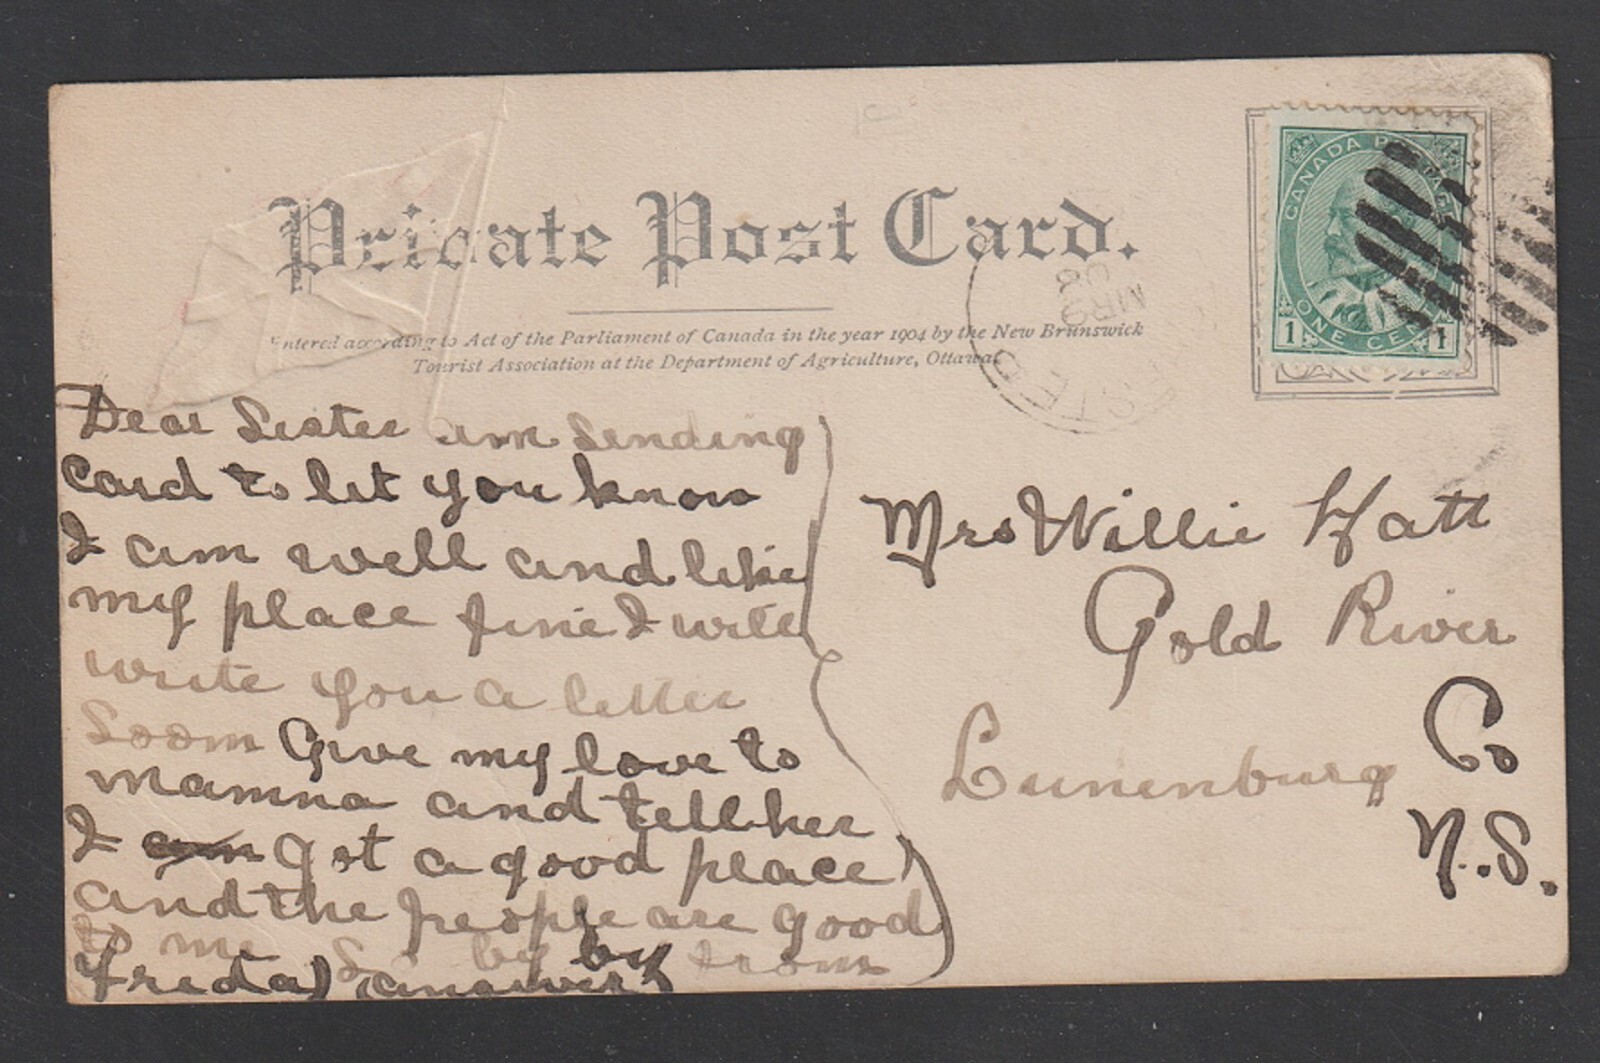 Private Post Card.
Entered according to Act of the Parliament of Canada in the year 1904 by the New Brunswick
Tourist Association at the Department of Agriculture, Ottawa
CANADA POSTAGE
1 ONE CENT 1
MR 9
Dear Sister am sending
card to let you know
I am well and like
my place fine I will
write you a letter
soom Give my love to
mamna and tell her
I am got a good place
and the people are good
to me So by by from
Freda) (answer)
Mrs Willie Hatt
Gold River
Lunenburg Co
N.S.